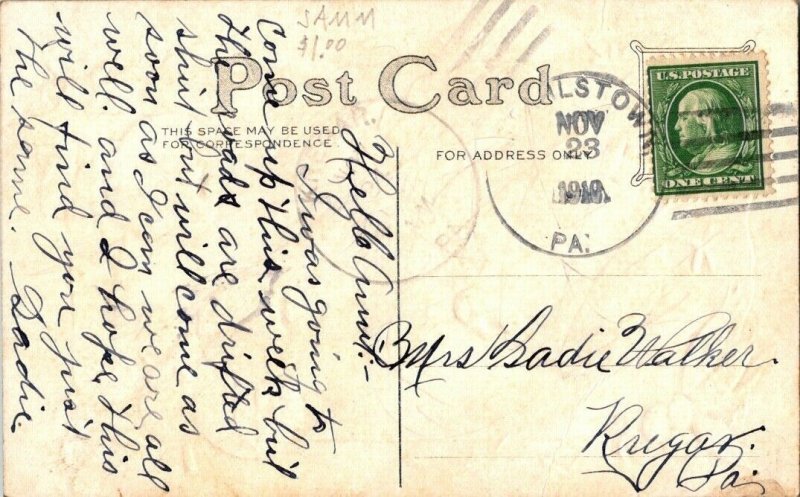 JAMM
$1.00
Post Card
THIS SPACE MAY BE USED
FOR CORRESPONDENCE
FOR ADDRESS ONLY
U.S. POSTAGE
ONE CENT
LSTOWN
NOV
23
PA.
Hello Aunt:-
I was going to
come up this week but
the roads are drifted
shut but will come as
soon as I can we are all
well. and I hope this
will find you just
the same. Sadie.
Mrs Sadie Walker.
Kregar.
Pa.